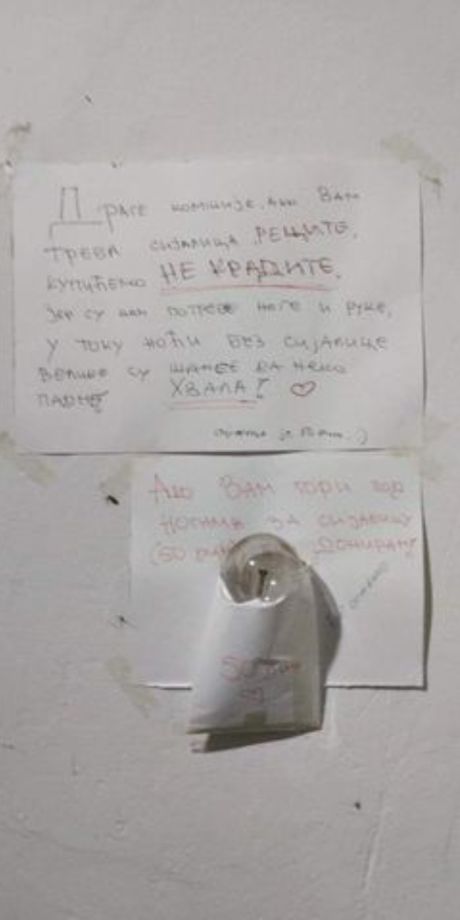 Драге комшије, ако Вам
треба сијалица РЕЦИТЕ,
купићемо НЕ КРАДИТЕ,
јер су нам потребе ноге и руке,
у току ноћи без сијалице
велике су шансе да неко
падне ХВАЛА! ♡
Ако Вам гори под
ногама за сијалицу
(50 дин) донирамо
50 дин
♡